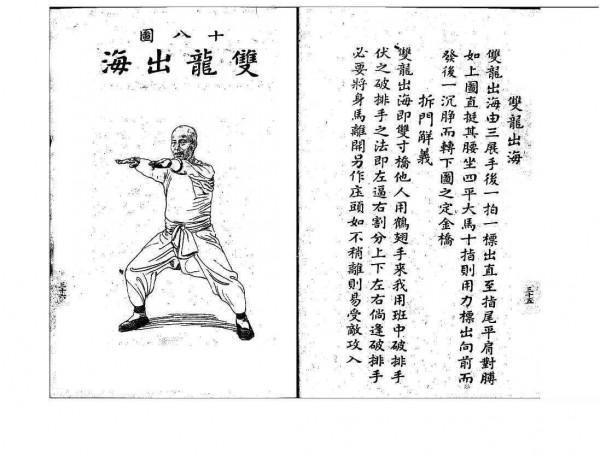 雙龍出海
雙龍出海由三展手後一拍一標出直至指尾平肩對膊
如上圖直挺其腰坐四平大馬十指則用力標出向前而
發後一沉睜而轉下圖之定金橋
拆門觧義
雙龍出海即雙寸橋他人用鶴翅手來我用班中破排手
伏之破排手之法即左逼右割分上下左右倘逢破排手
必要將身馬離開另作庄頭如不稍離則易受敵攻入
三十五
十八圖
雙龍出海
三十六